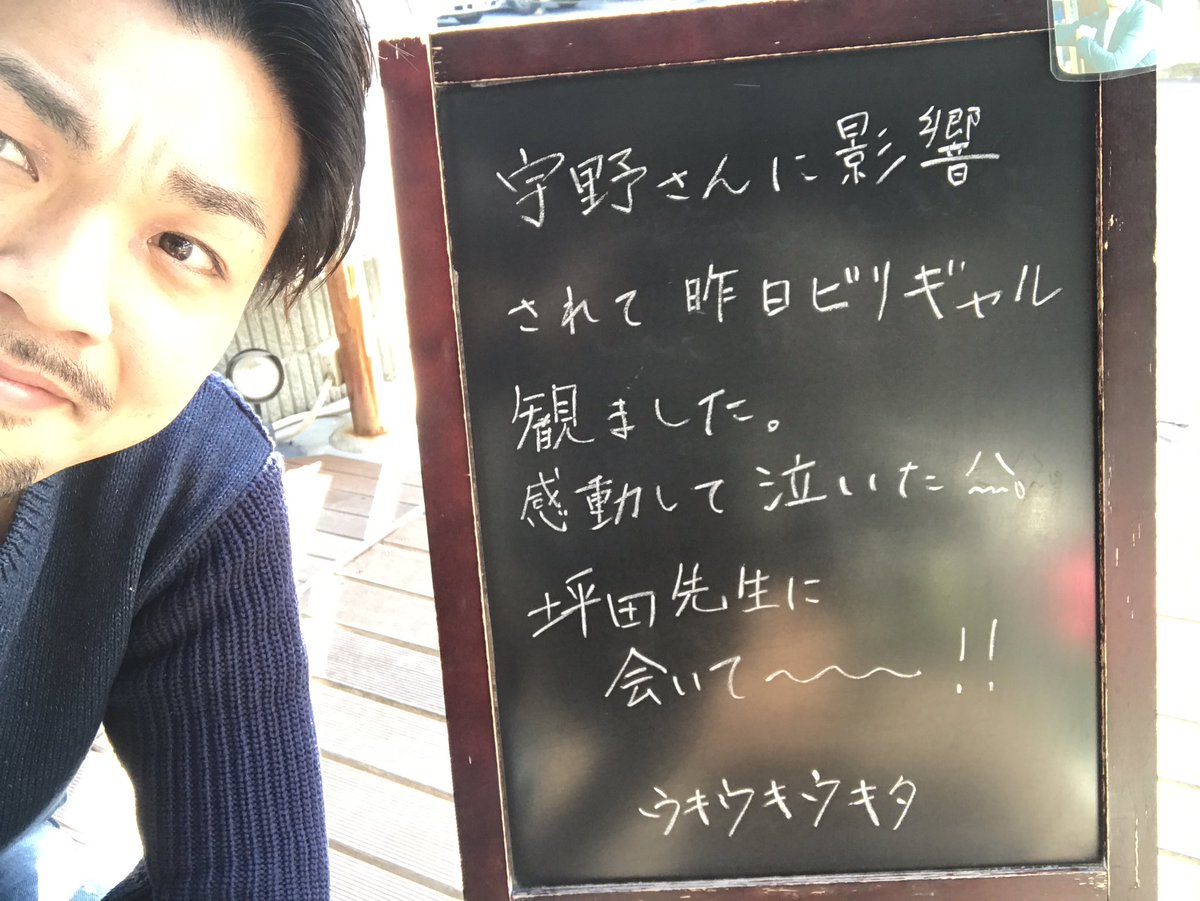 宇野さんに影響
されて昨日ビリギャル
観ました。
感動して泣いた
坪田先生に
会いて〜〜〜!!
ウキウキウキタ